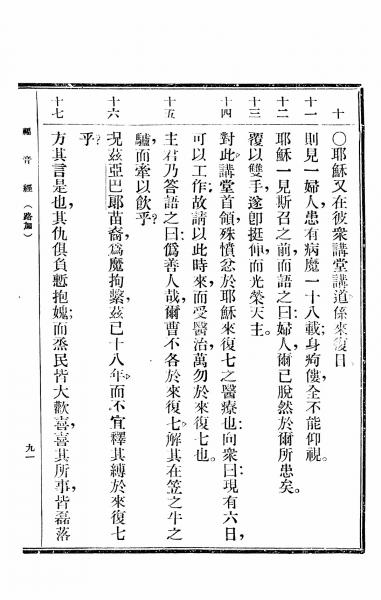 十　○耶穌又在彼衆講堂講道係來復日
十一　則見一婦人患有病魔一十八載身痀僂全不能仰視。
十二　耶穌一見斯召之前而語之曰婦人爾已脫然於爾所患矣。
十三　覆以雙手遂卽挺伸而光榮天主。
十四　對此講堂首領殊憤忿於耶穌來復七之醫療也向衆曰現有六日，
可以工作故請以此時來而受醫治萬勿於來復七也。
十五　主君乃答語之曰僞善人哉爾曹不各於來復七解其在笠之牛之
驢，而牽以飲乎？
十六　况茲亞巴耶苗裔爲魔拘繫茲已十八年，而不宜釋其縛於來復七
乎？
十七　方其言是也其仇俱負慙抱媿；而烝民皆大歡喜，喜其所事皆磊落
福音經（路加）
九一